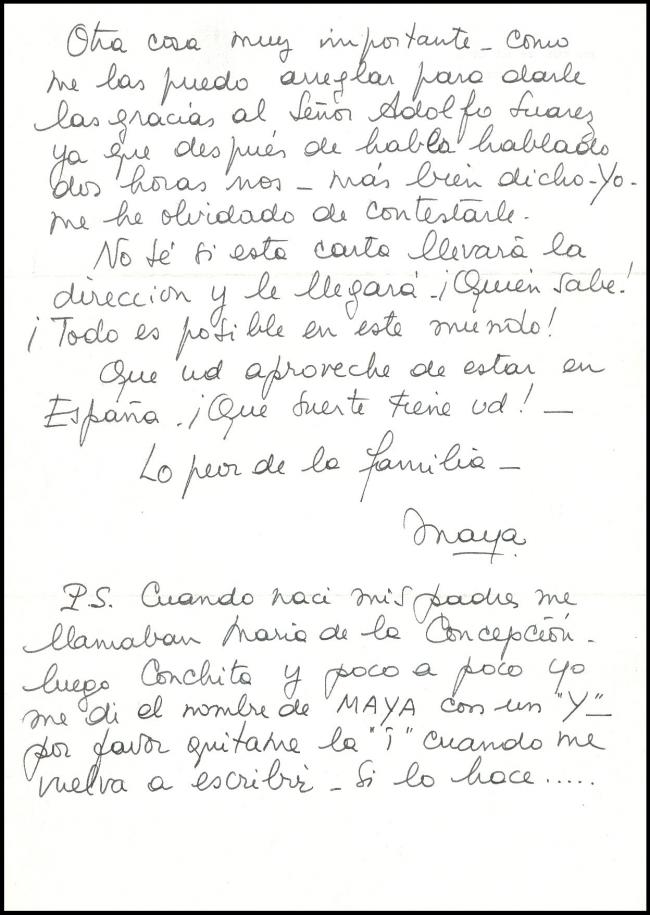 Otra cosa muy importante - como
me las puedo arreglar para darle
las gracias al Señor Adolfo Suarez
ya que después de habla hablado
dos horas nos - más bien dicho - Yo -
me he olvidado de contestarle.
No sé si esta carta llevará la
direccion y le llegará - ¡Quién sabe!
¡Todo es posible en este mundo!
Que ud aproveche de estar en
España. ¡Que suerte tiene ud! -
Lo peor de la familia -
Maya
P.S. Cuando naci mis padres me
llamaban Maria de la Concepción -
luego Conchita y poco a poco yo
me di el nombre de MAYA con un "Y" -
por favor quitame la "i" cuando me
vuelva a escribir - Si lo hace.....